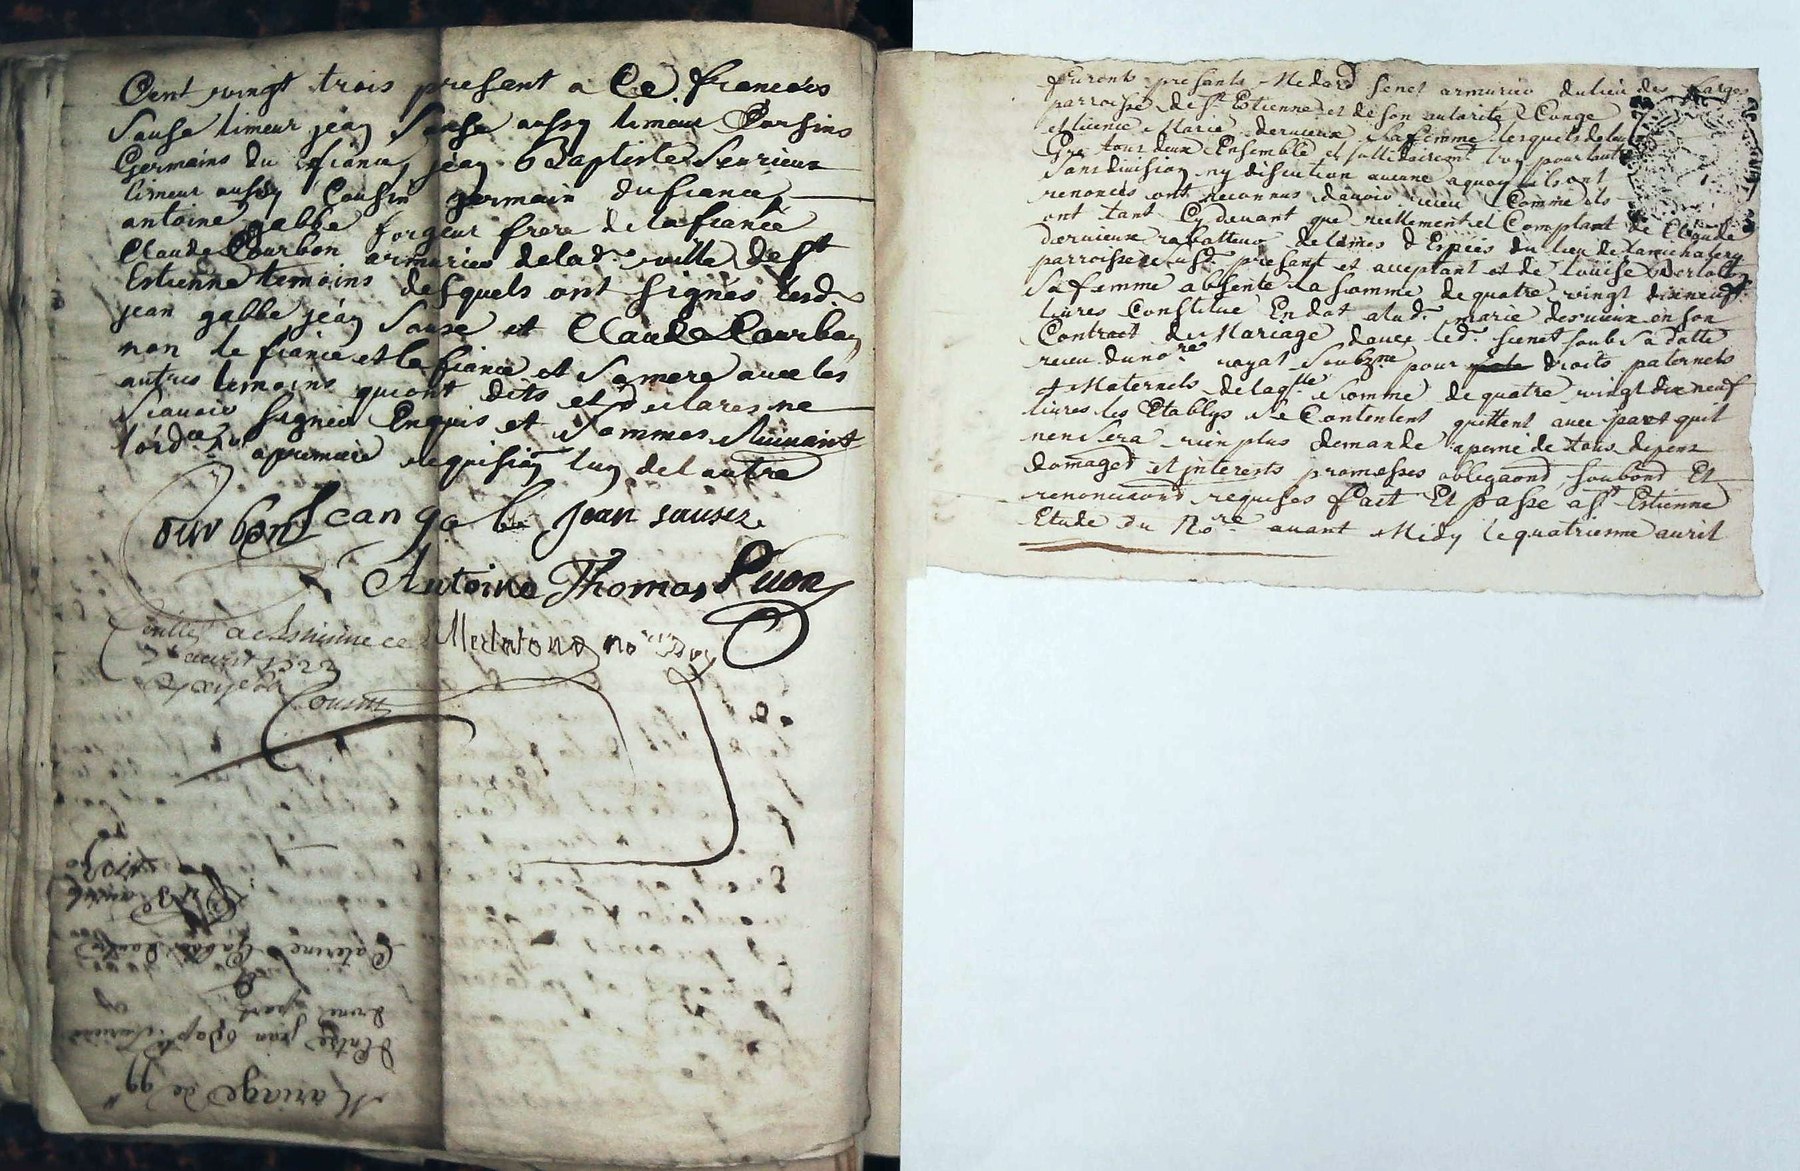 Cent vingt trois present a Ce francois
Sause limeur jean Sause aussy limeur Corsins
Germains du fiancé jean Baptiste Seurieux
limeur aussy Cousin germain du fiancé
antoine gabbe forgeur frere de la fiancée
Claude Courbon armurier de lad. ville de St
Estienne temoins desquels ont signés lesd.
jean gabbe jean Sause et Claude Courbon
non le fiancé et la fiancé et Sa mere avec les
autres temoins qui ont dits et declares ne
Scavoir Signer Enquis et Sommes Suivant
lord.ce a premiere requision lun de lautre
Courbon Jean ga be Jean sausez
Antoine Thomas
no.re Roy
avril 1723
Mariage de 99
Entre jean Bapt Seurieux
d'une part
Caterine Gabbe d'autre
furents presents Medard senet armurier du lieu des
parroisse de St Estienne et de son autorité Conge
et licence Marie dervieux Sa femme lesquels de leur
Gre tous deux Ensemble et sollidairemt l'un pour lautre
Sans division ny discution aucune a quoy ils ont
renonces ont reconnus davoir recu Comme ils
ont tant Cy devant que reellement et Comptant de Claude
dervieux rabatteur de lames d'Epées du lieu de
parroisse susd. present et acceptant et de Louise
Sa femme absente la somme de quatre vingt dix neuf
livres Constitué En dot a lad. marie dervieux en son
Contract de Mariage avec led. senet soub Sa datte
receu du no.re royal Soubz.ne pour droits paternels
et Maternels de laq.lle Somme de quatre vingt dix neuf
livres les Etablys se Contentent quittent avec pact quil
nen Sera rien plus demandé a peine de tous depens
domages et interests promesses obligaons soubons Et
renonciaons requises fait Et passe a St Estienne
Etude du No.re avant Midy le quatriesme avril